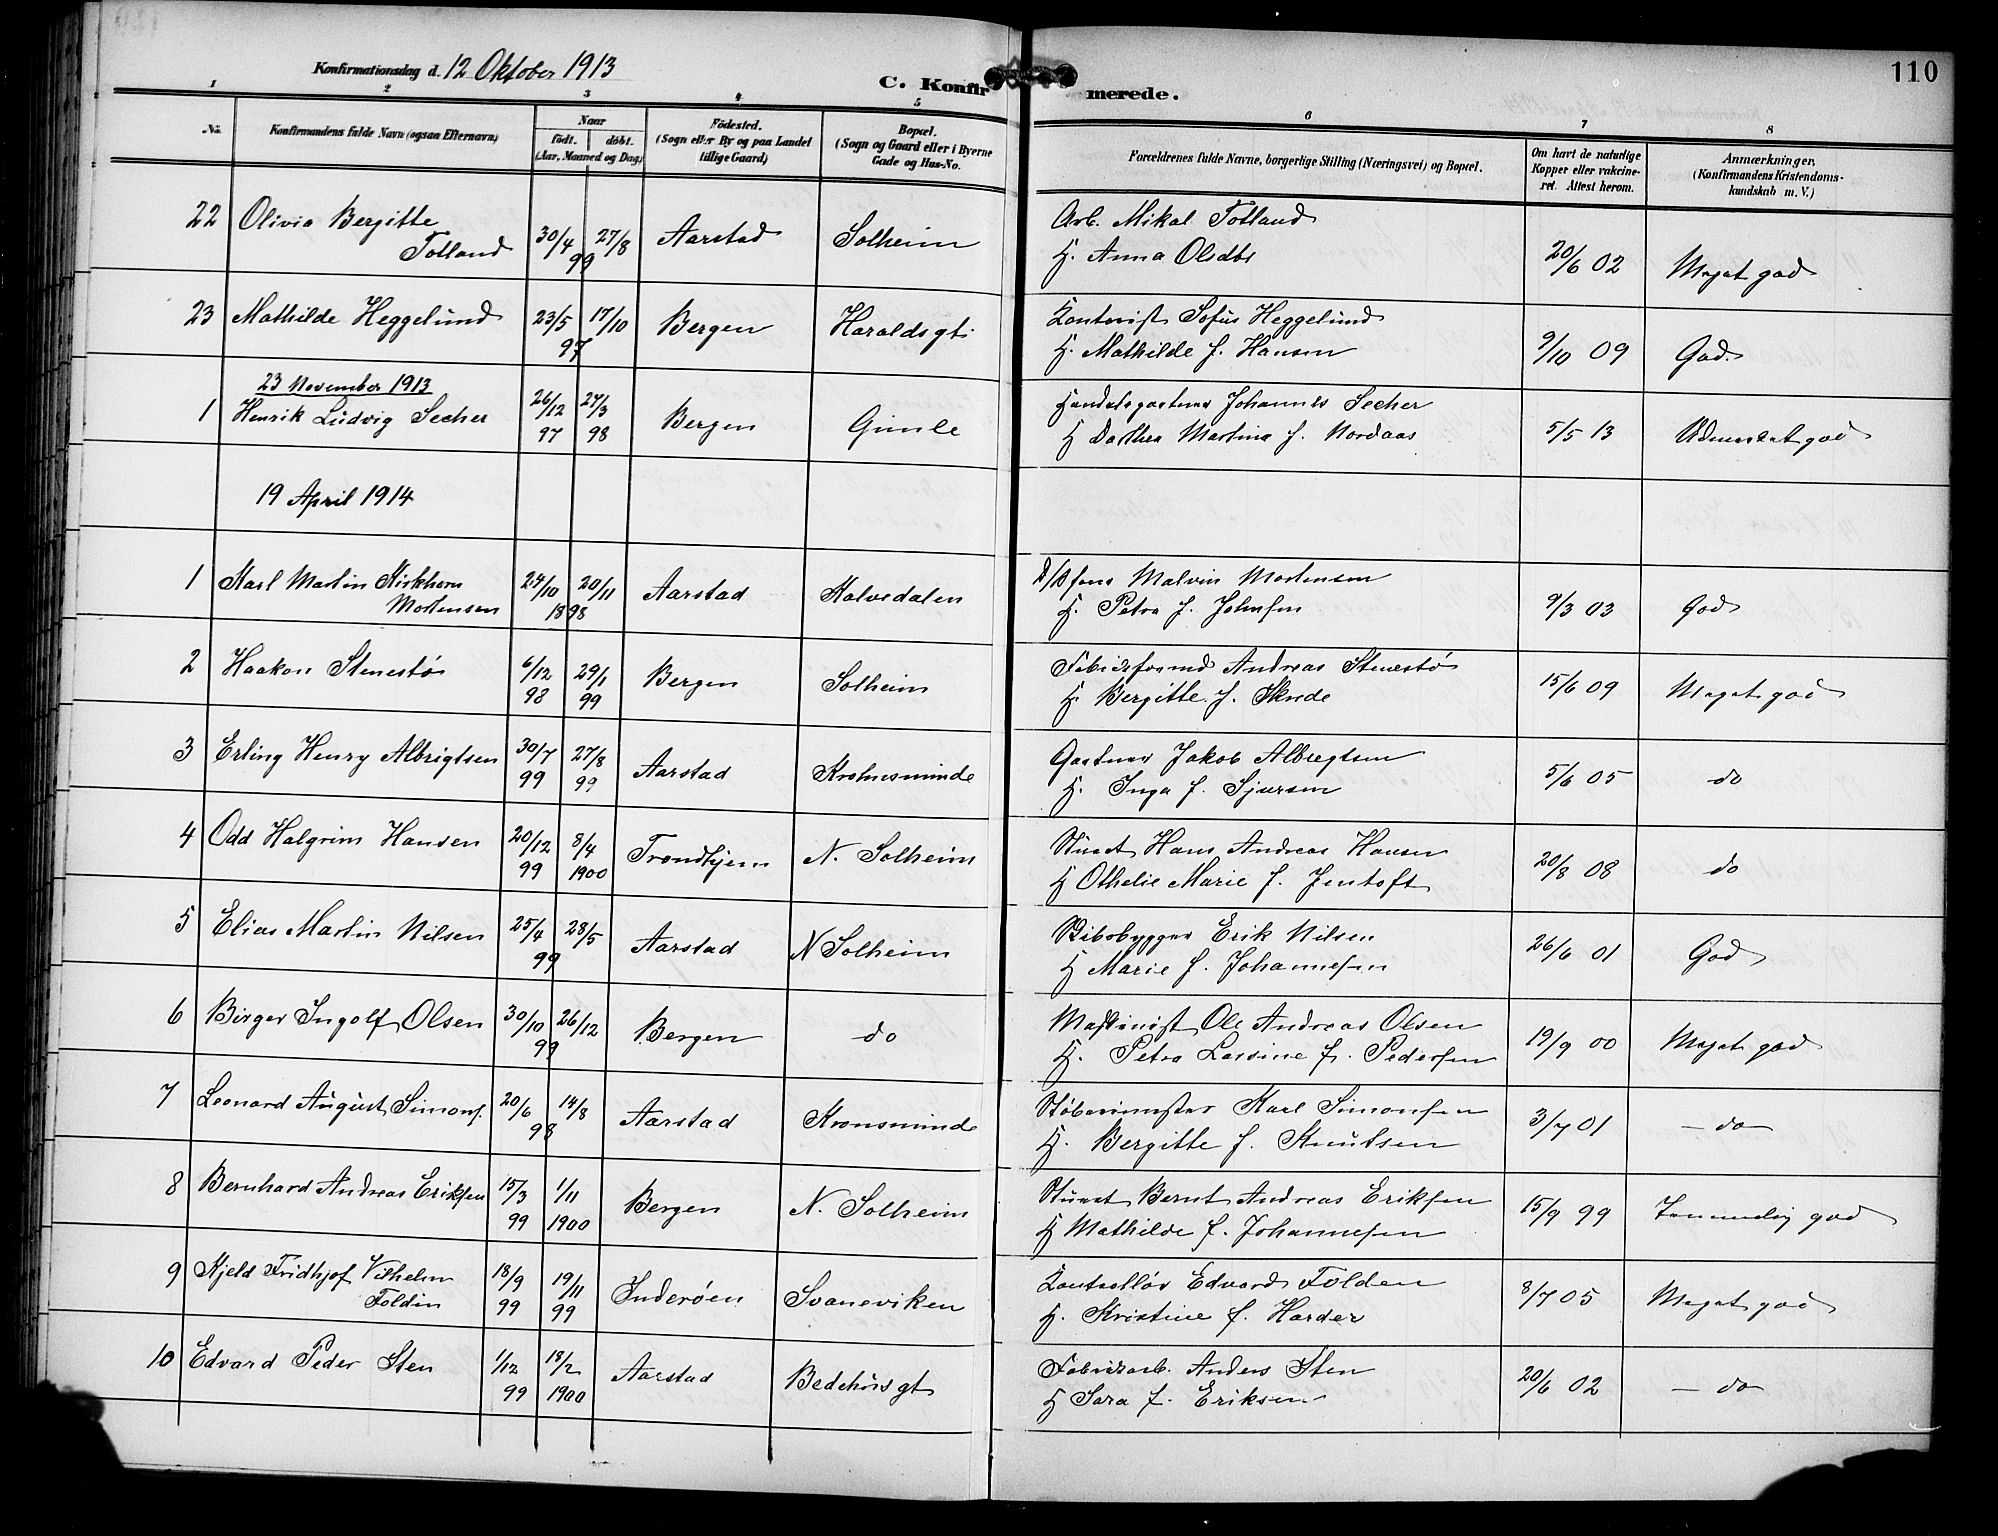 Konfirmationsdag d. 12 Oktober 1913
C. Konfirmerede.
110
1 2 3 4 5 6 7 8
No. Konfirmandens fulde Navn (ogsaa Efternavn)
Naar
födt. döbt.
(Aar, Maaned og Dag)
Födested.
(Sogn eller By og paa Landet
tillige Gaard)
Bopæl.
(Sogn og Gaard eller i Byerne
Gade og Hus-No.
Forældrenes fulde Navne, borgerlige Stilling (Næringsvei) og Bopæl.
Om havt de naturlige
Kopper eller vakcine-
ret. Attest herom.
Anmærkninger.
(Konfirmandens Kristendoms-
kundskab m. V.)
22 Olivia Bergitte
Totland 30/4 27/8 99 Aarstad Solheim
Arb. Mikal Totland
H. Anna Olsdtr 20/6 02 Meget god
23 Mathilde Heggelund 23/5 17/10 97 Bergen Haraldsgt.
Kontorist Sofus Heggelund
H. Mathilde f. Hansen 9/10 09 God.
23 November 1913
1 Henrik Ludvig Secher 26/12 97 27/3 98 Bergen Gimle
Handelsgartner Johannes Secher
H Dorthea Martina f. Nordaas 5/5 13 Udmerket god
19 April 1914
1 Karl Martin Kirkhorn
Mortensen 24/10 20/11 1898 Aarstad Kalvedalen
Malvin Mortensen
H. Petra f. Johnsen 9/3 03 God
2 Haakon Stenestø 6/12 98 29/1 99 Bergen Solheim
Andreas Stenestø
H. Bergitte f. Skrede 15/6 09 Meget god
3 Erling Henry Albrigtsen 30/7 99 27/8 99 Aarstad Kronesminde
Gartner Jakob Albregtsen
H. Inga f. Sjursen 5/6 05 do
4 Odd Halgrim Hansen 20/12 99 8/4 1900 Trondhjem N. Solheim
Stuert Hans Andreas Hansen
H Othelie Marie f. Jentoft 20/8 08 do
5 Elias Martin Nilsen 25/4 28/5 99 Aarstad N Solheim
Skibsbygger Erik Nilsen
H Marie f. Johannesen 26/6 01 God
6 Birger Ingolf Olsen 30/10 26/12 99 Bergen do
Maskinist Ole Andreas Olsen
H. Petra Lassine f. Pedersen 19/9 00 Meget god
7 Leonard August Simons. 20/6 14/8 98 Aarstad Kronsminde
Støberimester Karl Simonsen
H. Bergitte f. Knutsen 3/7 01 — do
8 Bernhard Andreas Eriksen 15/3 99 1/11 1900 Bergen N. Solheim
Stuert Bernt Andreas Eriksen
H Mathilde f. Johannesen 15/9 99 Temmelig god
9 Kjeld Fridhjof Vilhelm
Foldin 18/9 99 19/11 99 Inderøen Svaneviken
Kontrollør Edvard Folden
H. Kristine f. Harder 8/7 05 Meget god
10 Edvard Peder Sten 1/12 99 18/2 1900 Aarstad Bedehusgt
Fabrikarb. Anders Sten
H Sara f. Eriksen 20/6 02 — do